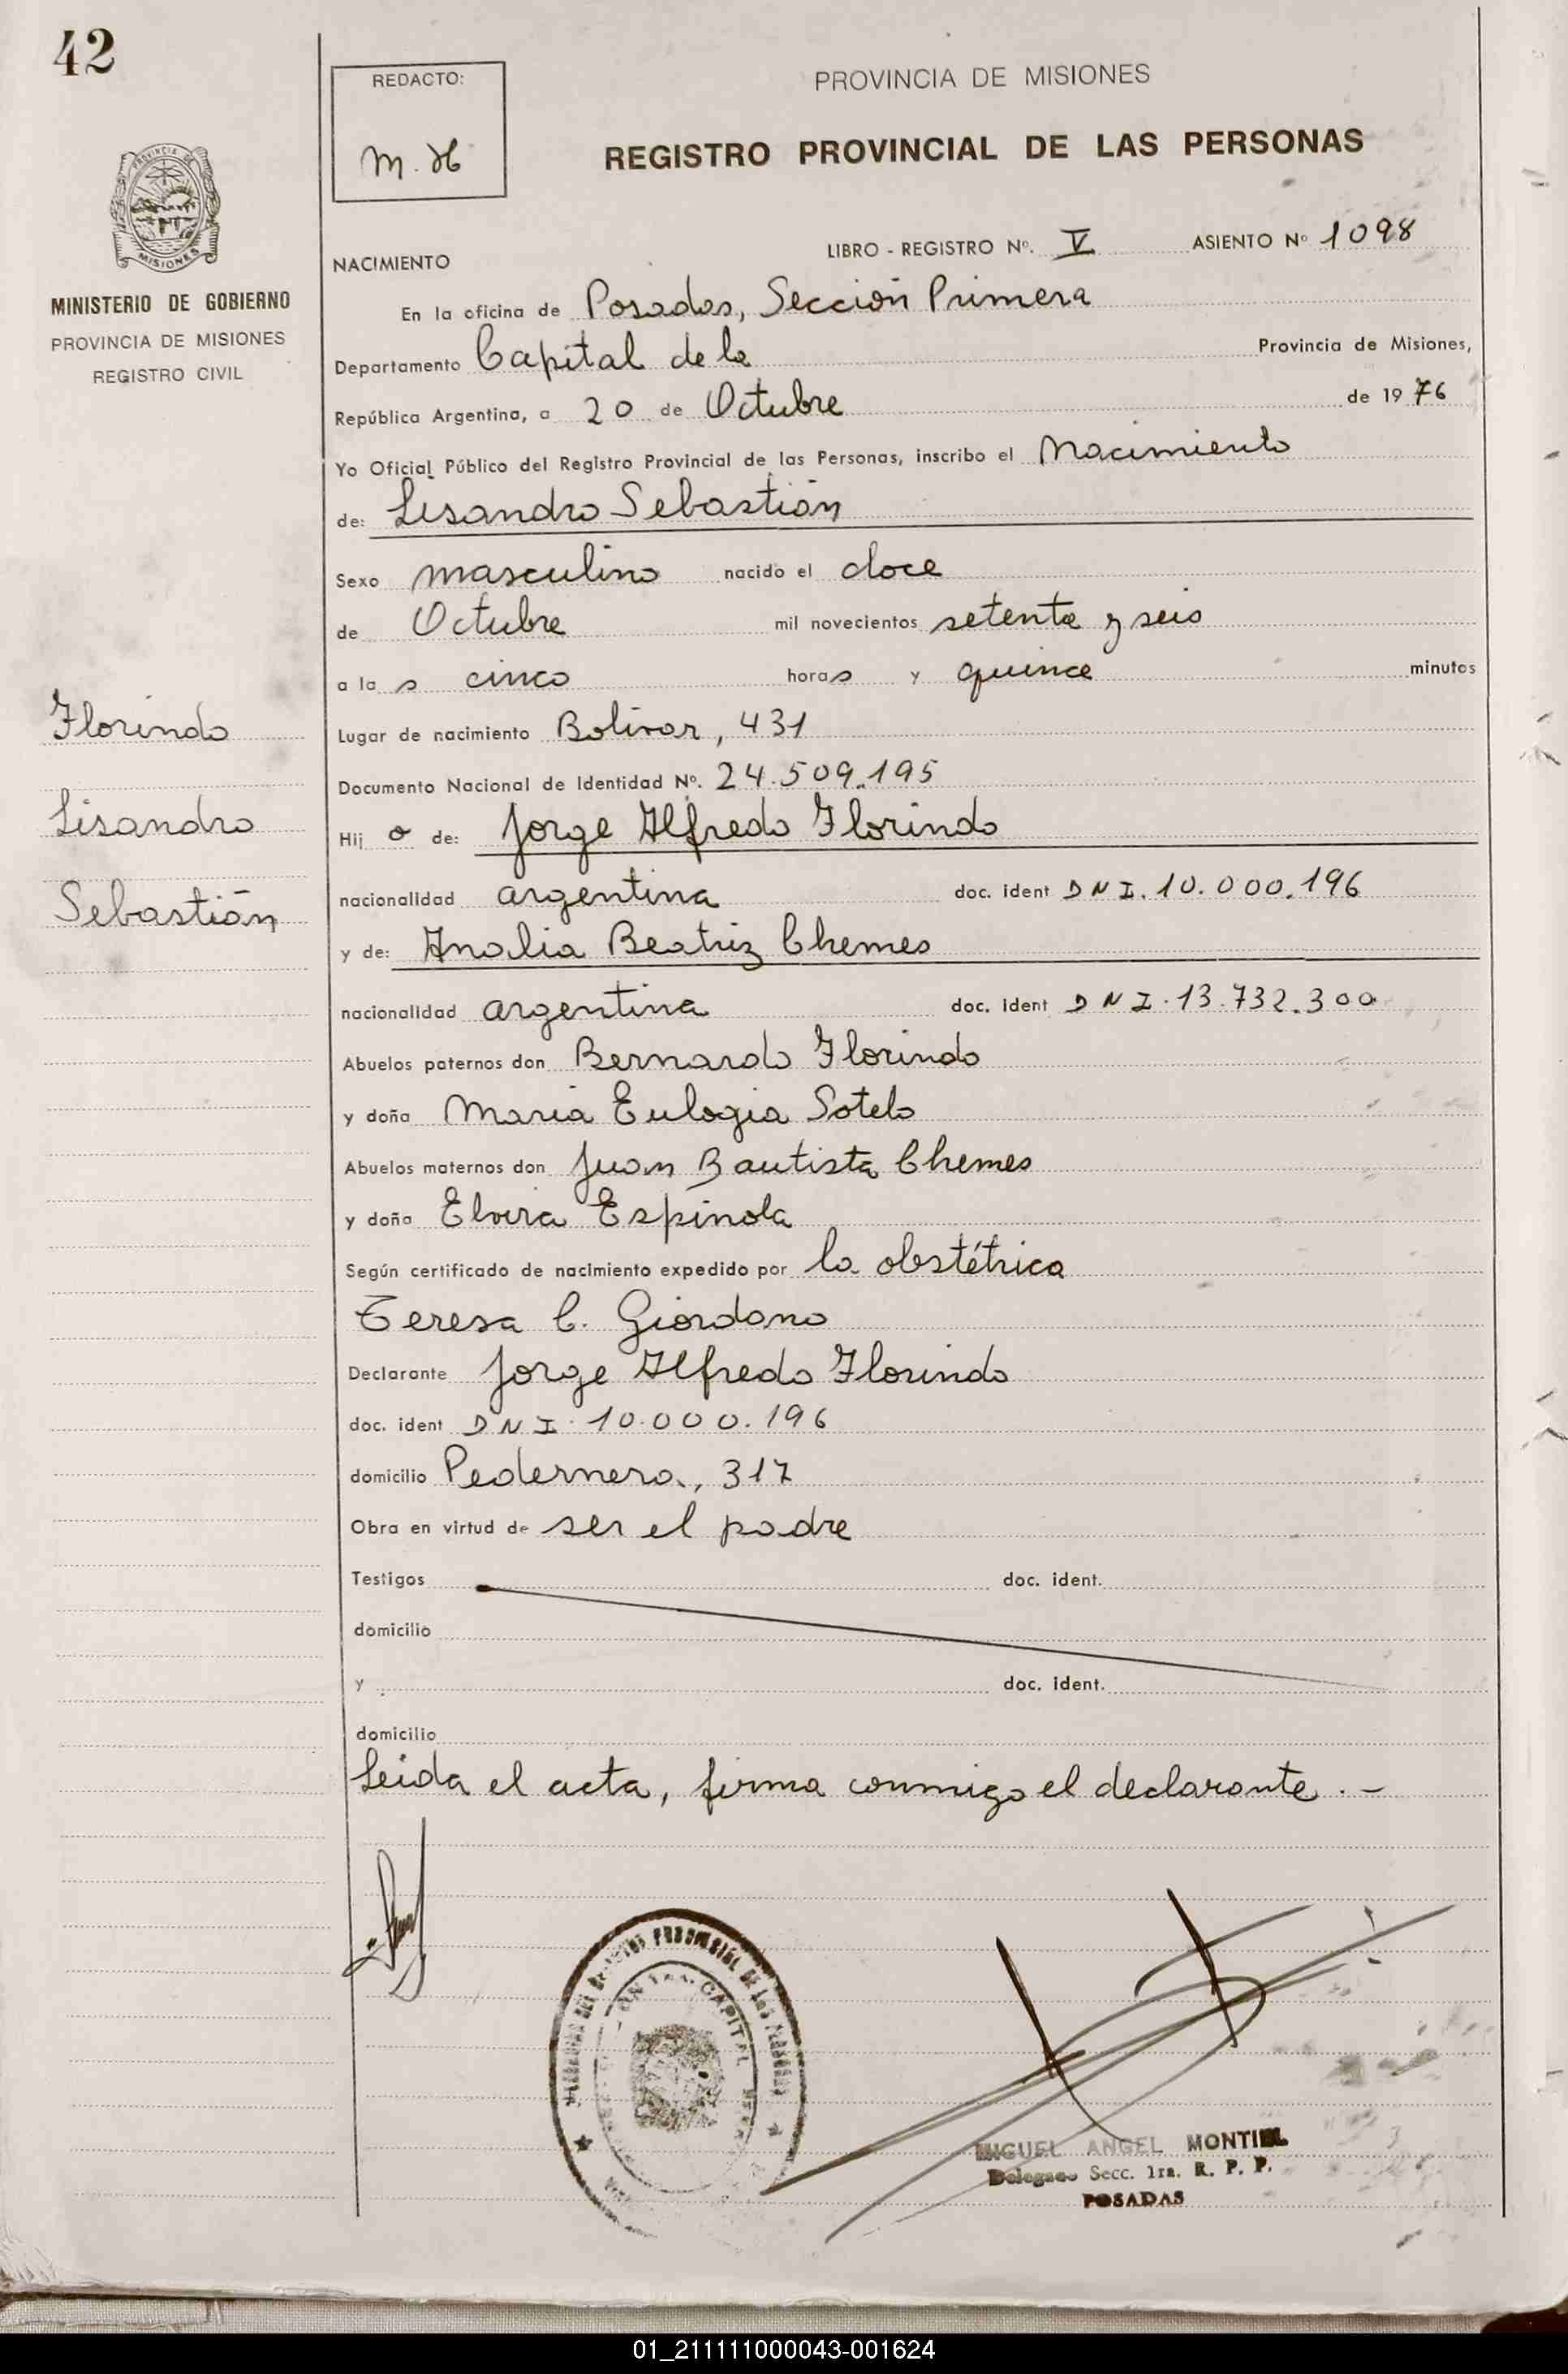 42
REDACTO:
M. H
PROVINCIA DE MISIONES
REGISTRO PROVINCIAL DE LAS PERSONAS
PROVINCIA DE
MISIONES
MINISTERIO DE GOBIERNO
PROVINCIA DE MISIONES
REGISTRO CIVIL
NACIMIENTO
LIBRO - REGISTRO Nº. V ASIENTO Nº 1098
En la oficina de Posadas, Sección Primera
Departamento Capital de la Provincia de Misiones,
República Argentina, a 20 de Octubre de 1976
Yo Oficial Público del Registro Provincial de las Personas, inscribo el Nacimiento
de: Lisandro Sebastián
Sexo masculino nacido el doce
de Octubre mil novecientos setenta y seis
a la s cinco horas y quince minutos
Lugar de nacimiento Bolívar, 431
Documento Nacional de Identidad Nº. 24.509.195
Hij o de: Jorge Alfredo Florindo
nacionalidad argentina doc. ident DNI. 10.000.196
y de: Analia Beatriz Chemes
nacionalidad argentina doc. ident DNI. 13.732.300
Abuelos paternos don Bernardo Florindo
y doña María Eulogia Sotelo
Abuelos maternos don Juan Bautista Chemes
y doña Elvira Espínola
Según certificado de nacimiento expedido por la obstétrica
Teresa C. Giordano
Declarante Jorge Alfredo Florindo
doc. ident DNI. 10.000.196
domicilio Pedernera, 317
Obra en virtud de ser el padre
Testigos doc. ident.
domicilio
y doc. ident.
domicilio
Leida el acta, firma conmigo el declarante. -
Florindo
Lisandro
Sebastián
PROVINCIAL DE LAS PERSONAS
CAPITAL
MIGUEL ANGEL MONTIEL
Delegado Secc. 1ra. R. P. P.
POSADAS
01_211111000043-001624